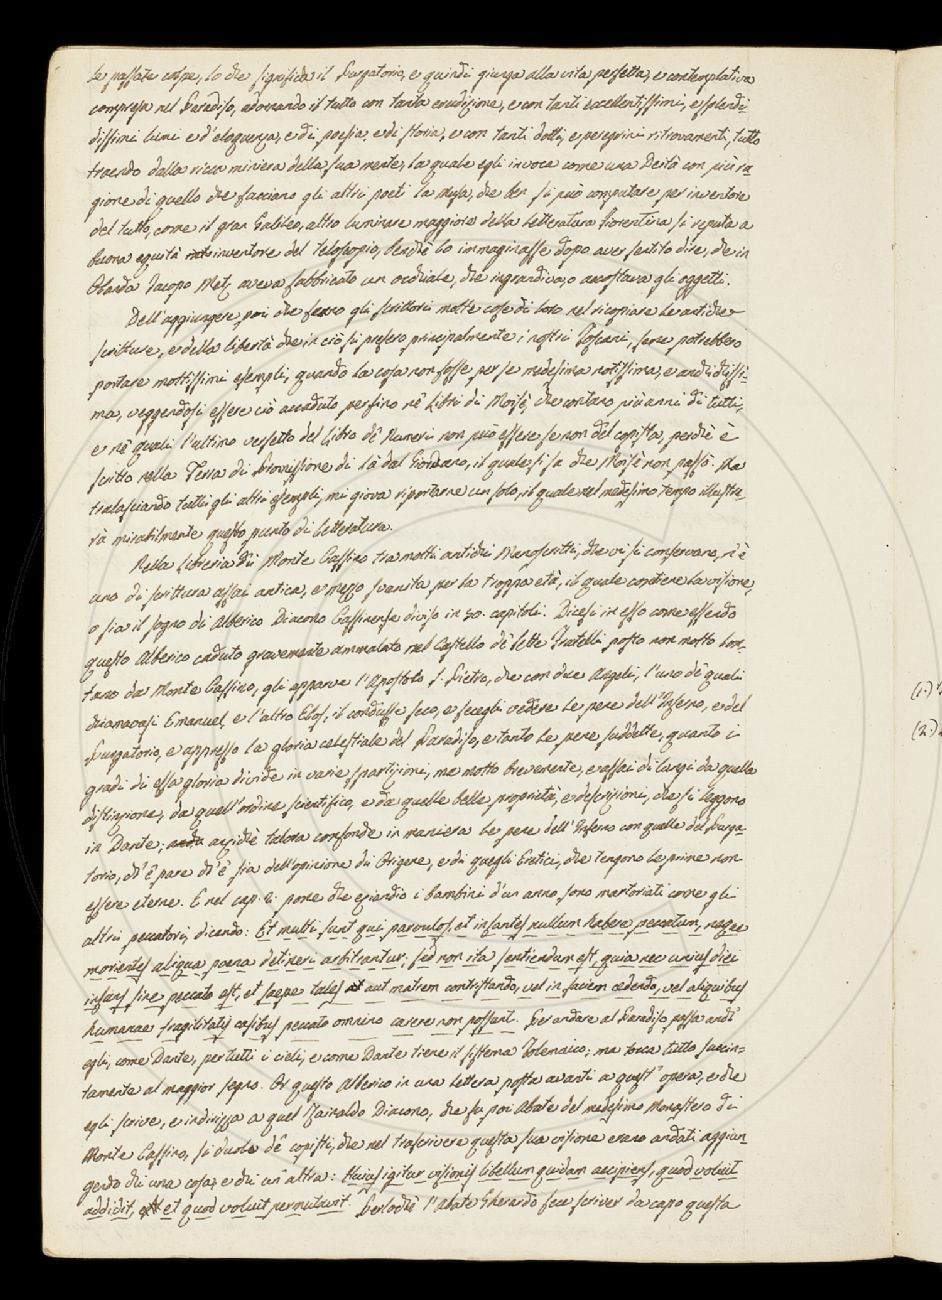 le passate colpe, lo che significa il Purgatorio, e quindi giunga alla vita perfetta, e contemplativa
compresa nel Paradiso, adornando il tutto con tanta erudizione, e con tanti eccellentissimi, e splendi-
dissimi lumi e d'eloquenza, e di poesia, e di storia, e con tanti dotti, e peregrini ritrovamenti, tutto
traendo dalla ricca miniera della sua mente, la quale egli invoca come una Deità con più ra-
gione di quello che facciano gli altri poeti la Musa, che ben si può computare per inventore
del tutto, come il gran Galileo, altro luminare maggiore della letteratura fiorentina si reputa a
buona equità inventore del Teloscopio, benchè lo immaginasse dopo aver sentito dire, che in
Olanda Jacopo Metz aveva fabbricato un occhiale, che ingrandiva, o accostava gli oggetti.
Dell'aggiungere poi che fecero gli scrittori molte cose di loro nel ricopiare le antiche
scritture, e della libertà che in ciò si presero principalmente i nostri Toscani, se ne potrebbero
portare moltissimi esempli, quando la cosa non fosse per se medesima notissima, e antichissi-
ma, veggendosi essere ciò accaduto persino ne' Libri di Moisè, che contano più anni di tutti,
e ne' quali l'ultimo versetto del Libro de' Numeri non può essere se non del copista, perchè è
scritto nella Terra di Promissione di là dal Giordano, il quale si sa che Moisè non passò. Ma
tralasciando tutti gli altri esempli, mi giova riportarne un solo, il quale nel medesimo tempo illustre-
rà mirabilmente questo punto di Letteratura.
Nella Libreria di Monte Cassino tra molti antichi Manoscritti, che vi si conservano, v'è
uno di scrittura assai antica, e mezzo svanita per la troppa età, il quale contiene la visione,
o sia il sogno di Alberico Diacono Cassinense diviso in 50. capitoli. Dicesi in esso come essendo
questo Alberico caduto gravemente ammalato nel Castello de' Sette Fratelli posto non molto lon-
tano da Monte Cassino, gli apparve l'Apostolo S. Pietro, che con due Angeli, l'uno de' quali
chiamavasi Emanuel e l'altro Elos, il condusse seco, e fecegli vedere le pene dell'Inferno, e del
Purgatorio, e appresso la gloria celestiale del Paradiso, e tanto le pene suddette, quanto i
gradi di essa gloria divide in varie spartizioni, ma molto brevemente, e assai di lungi da quella
distinzione, da quell'ordine scientifico, e da quelle belle proprietà, e descrizioni, che si leggono
in Dante; acciochè talora confonde in maniera le pene dell'Inferno con quelle del Purga-
torio, ch'è pare ch'è sia dell'opinione di Origene, e di quegli Eretici, che tengono le prime non
essere eterne. E nel cap. 2. pone che eziandio i bambini d'un anno sono martoriati come gli
altri peccatori, dicendo: Et multi sunt qui parvulos, et infantes nullum habere peccatum, neque
morientes aliqua poena detineri arbitrantur, sed non ita sentiendum est, quia nec unius diei
infans sine peccato est, et saepe tales aut matrem contristando, vel in faciem cedendo, vel aliquibus
humanae fragilitatis casibus peccato omnino carere non possunt. Per andare al Paradiso passa anch'
egli, come Dante, per tutti i cieli, e come Dante tiene il sistema Tolemaico; ma tocca tutto succin-
tamente al maggior segno. Or questo Alberico in una lettera posta avanti a quest'opera, e che
egli scrive, e indirizza a quel Rainaldo Diacono, che fu poi Abate del medesimo Monastero di
Monte Cassino, si duole de' copisti, che nel trascrivere questa sua visione erano andati aggiun-
gendo chi una cosa, e chi un'altra: Huius igitur visionis libellum quidam accipiens, quod voluit
addidit, et quod voluit permutavit. Perlochè l'Abate Gherardo fece scriver da capo questa
(1.)
(2.)